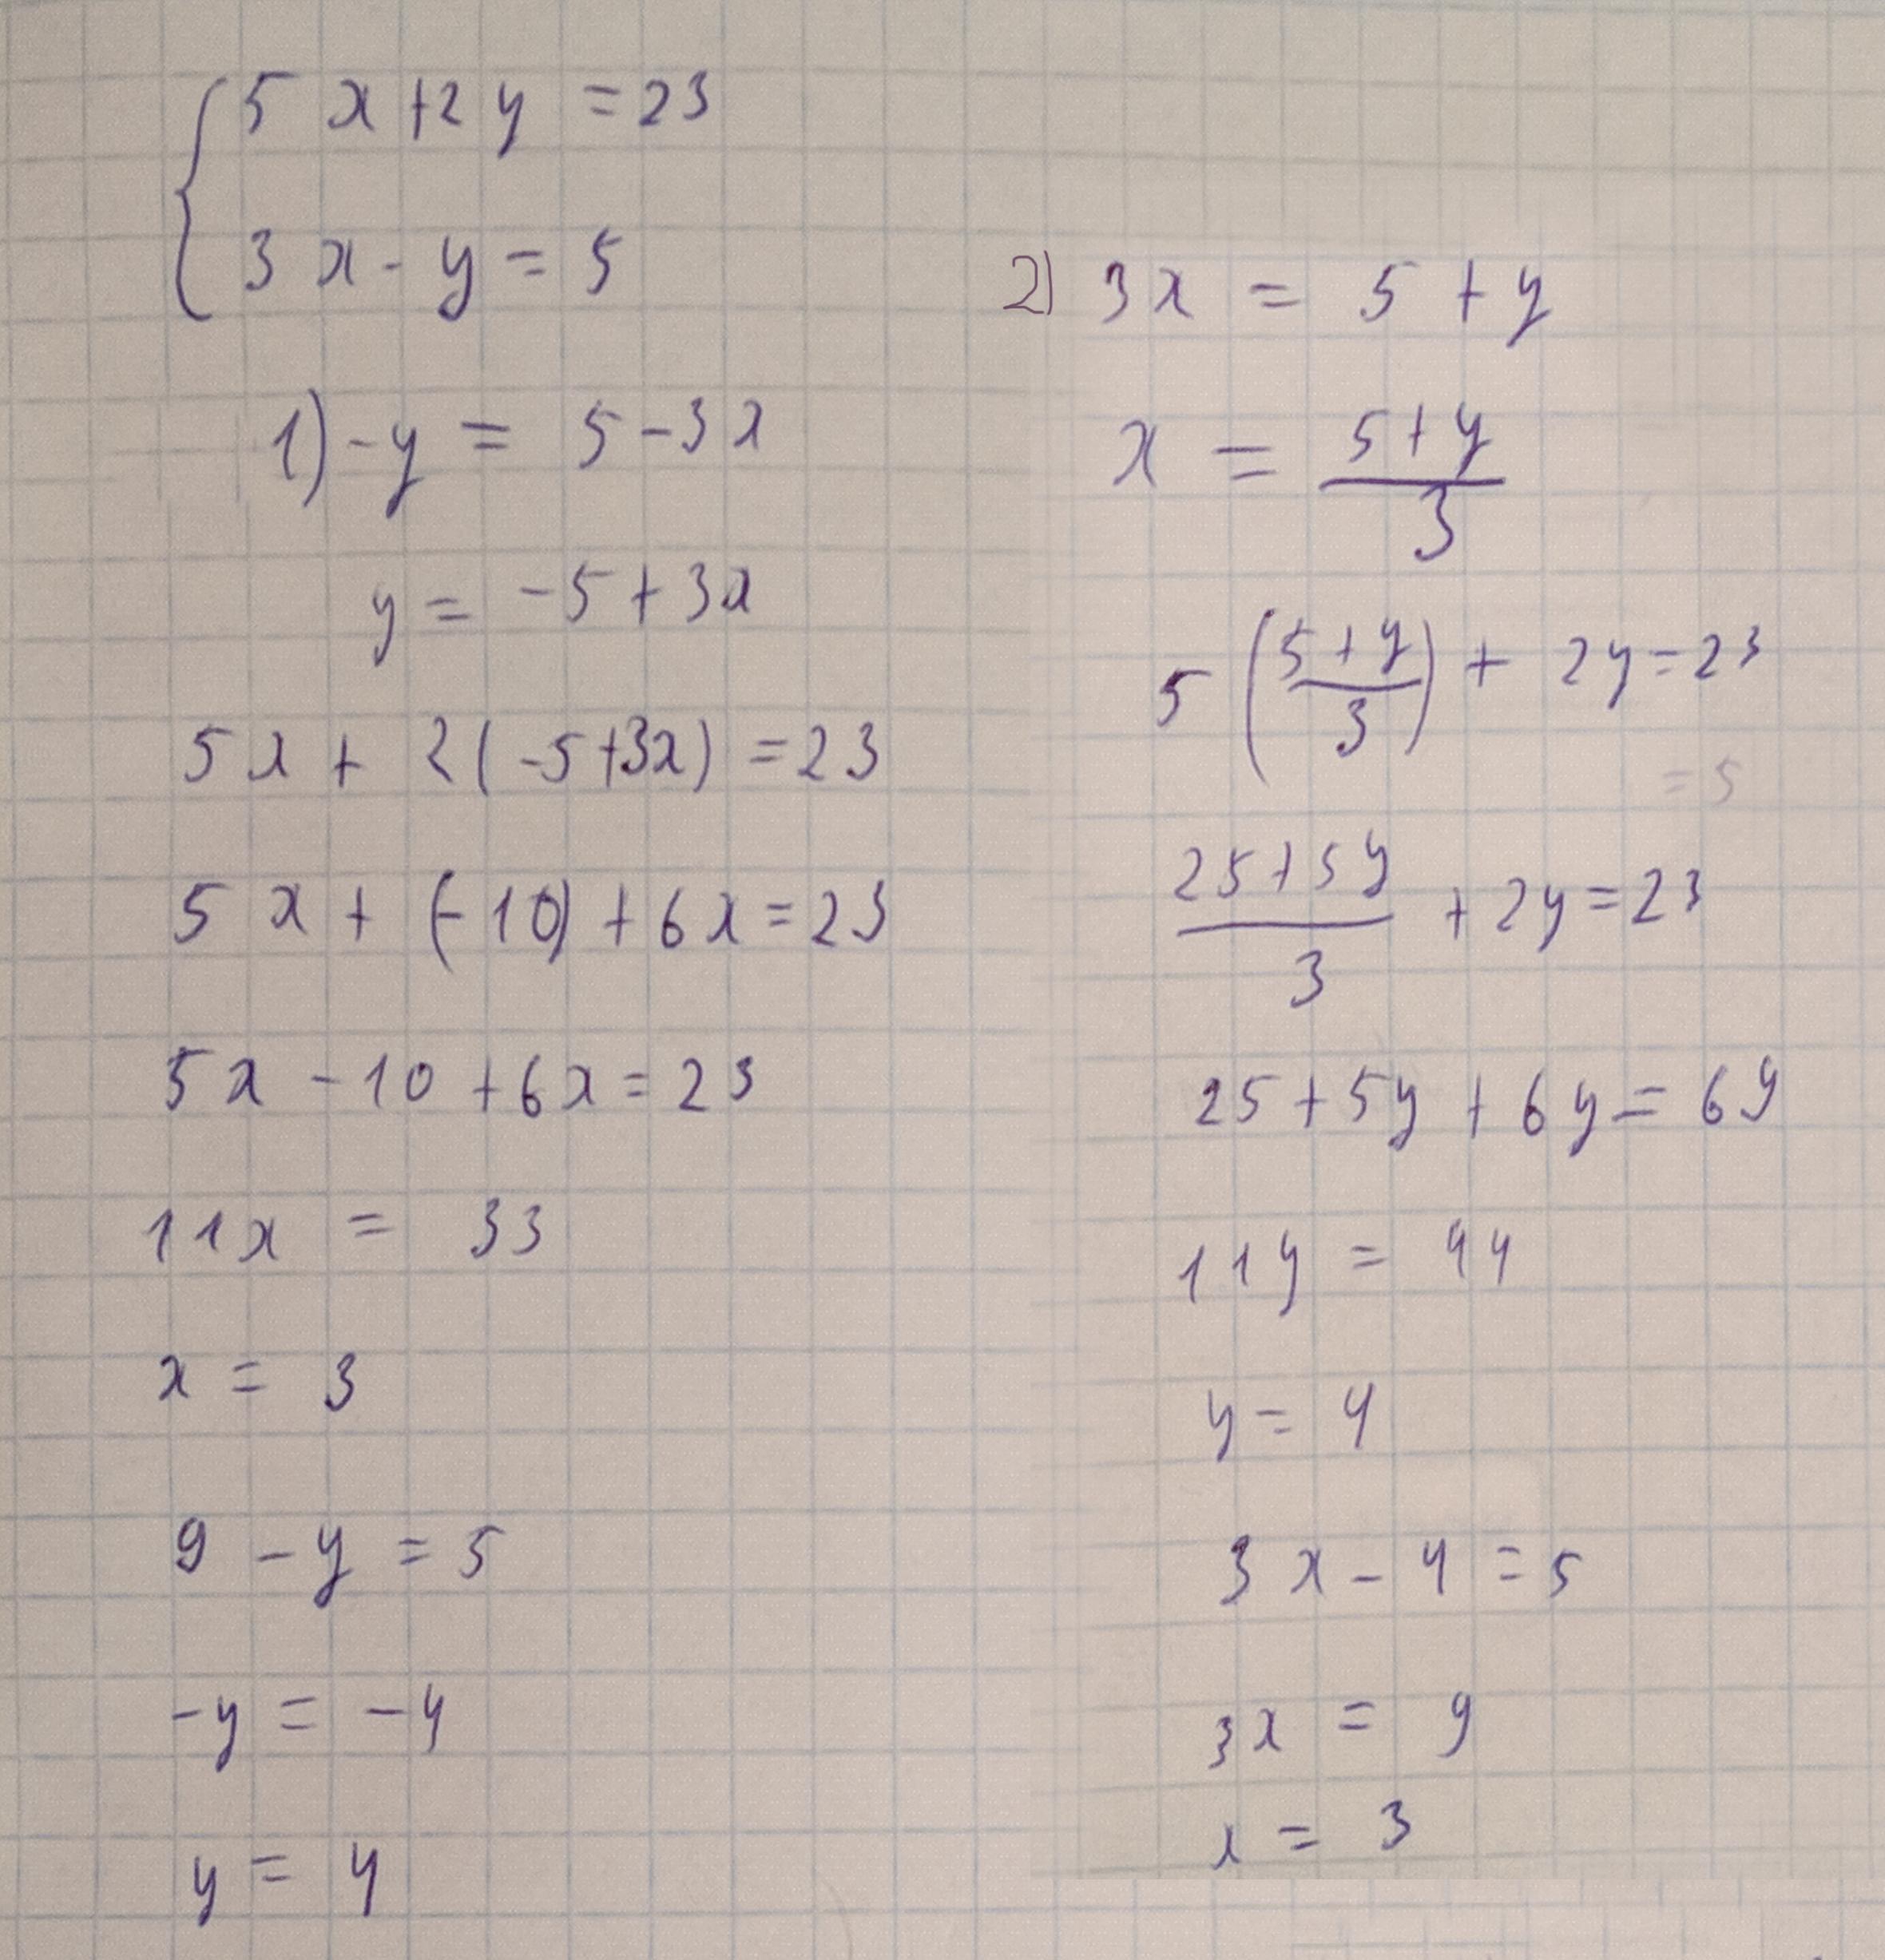 5x+2y=23
3x-y=5
1) -y = 5-3x
y = -5+3x
5x + 2(-5+3x) = 23
5x + (-10) + 6x = 23
5x - 10 + 6x = 23
11x = 33
x = 3
9 - y = 5
-y = -4
y = 4
2) 3x = 5 + y
x = (5+y)/3
5((5+y)/3) + 2y = 23
= 5
(25+5y)/3 + 2y = 23
25 + 5y + 6y = 69
11y = 44
y = 4
3x - 4 = 5
3x = 9
x = 3